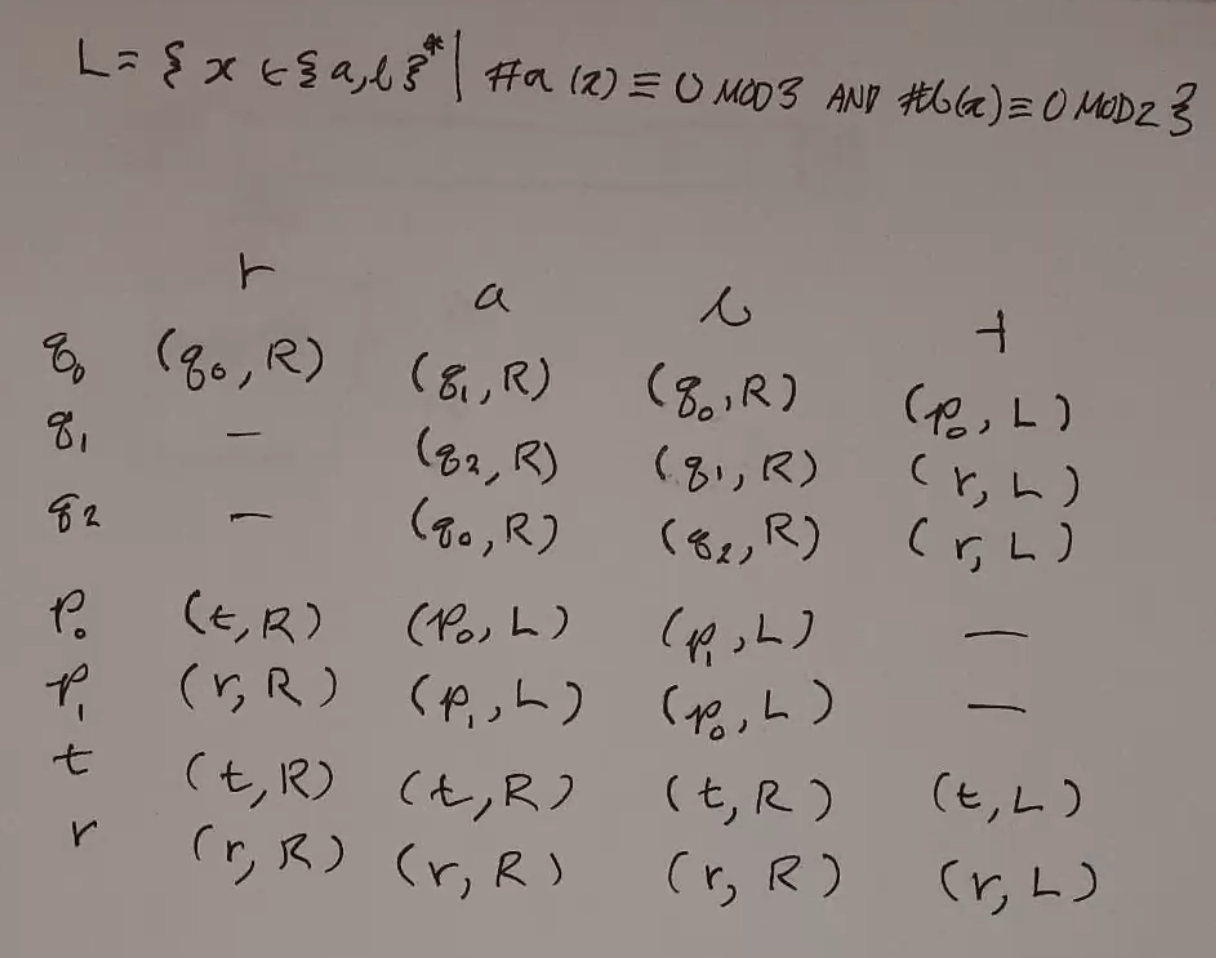 L = { x ∈ {a,b}* | #a(x) ≡ 0 MOD3 AND #b(x) ≡ 0 MOD2 }
⊢ a b ⊣
q₀ (q₀, R) (q₁, R) (q₀, R) (p₀, L)
q₁ — (q₂, R) (q₁, R) (r, L)
q₂ — (q₀, R) (q₂, R) (r, L)
p₀ (t, R) (p₀, L) (p₁, L) —
p₁ (r, R) (p₁, L) (p₀, L) —
t (t, R) (t, R) (t, R) (t, L)
r (r, R) (r, R) (r, R) (r, L)